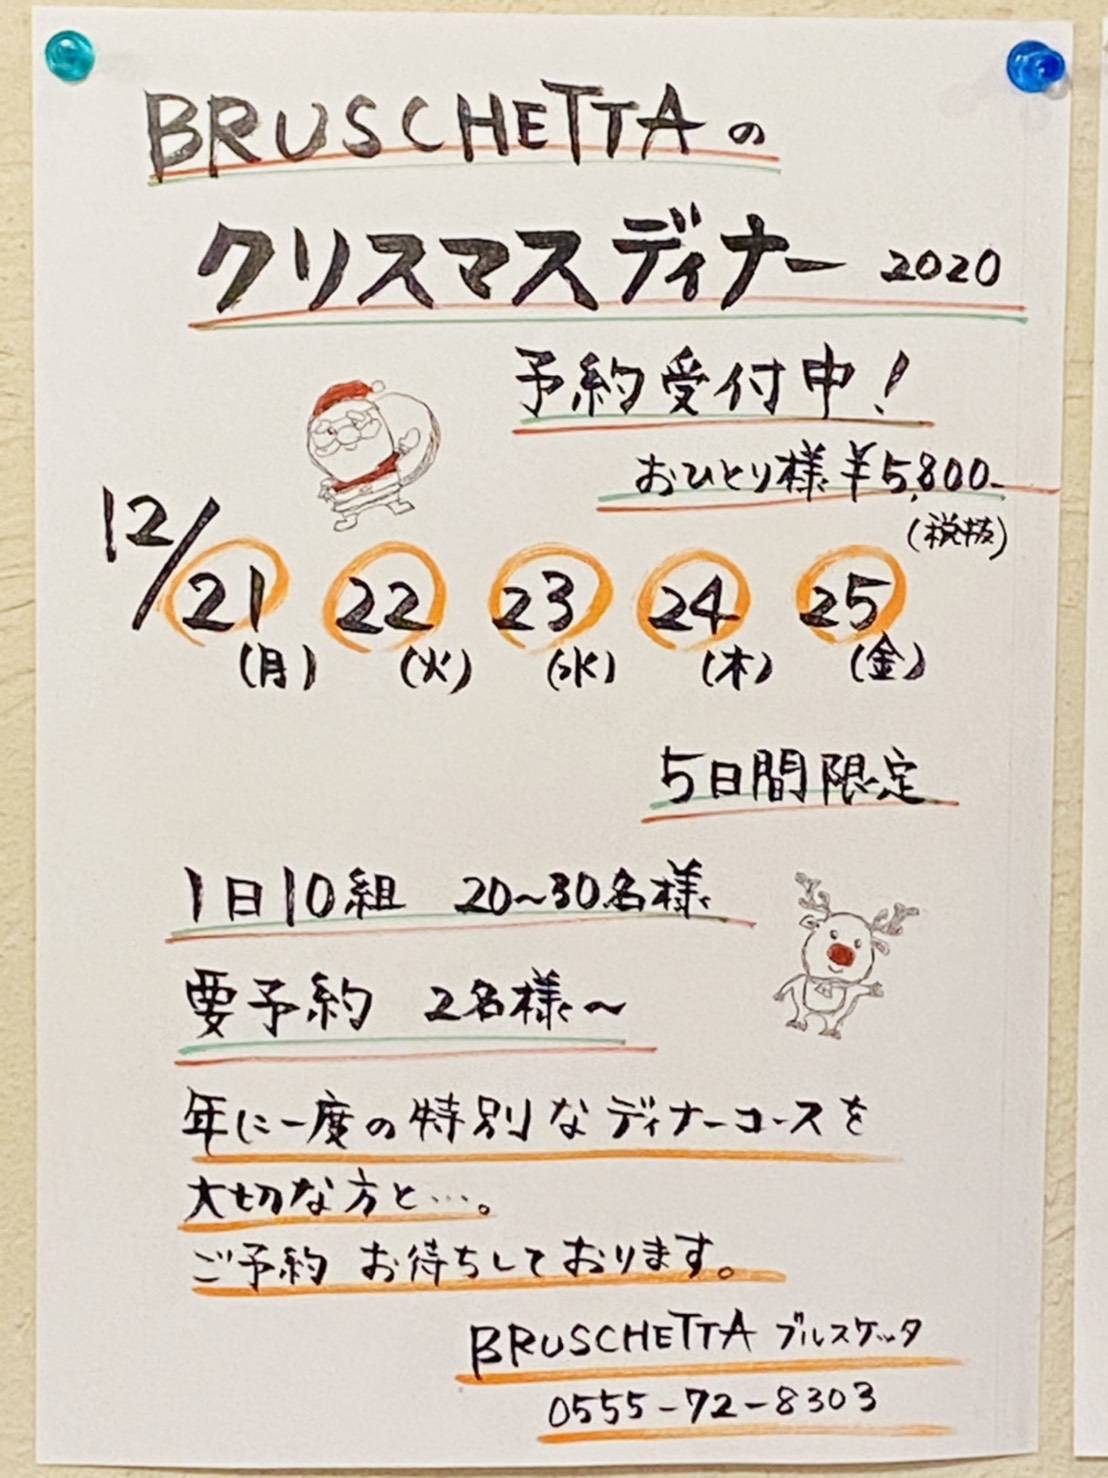 BRUSCHETTAの
クリスマスディナー 2020
予約受付中!
おひとり様 ¥5,800-
(税抜)
12/21 22 23 24 25
(月) (火) (水) (木) (金)
5日間限定
1日10組 20~30名様
要予約 2名様~
年に一度の特別なディナーコースを
大切な方と…。
ご予約 お待ちしております。
BRUSCHETTA ブルスケッタ
0555-72-8303